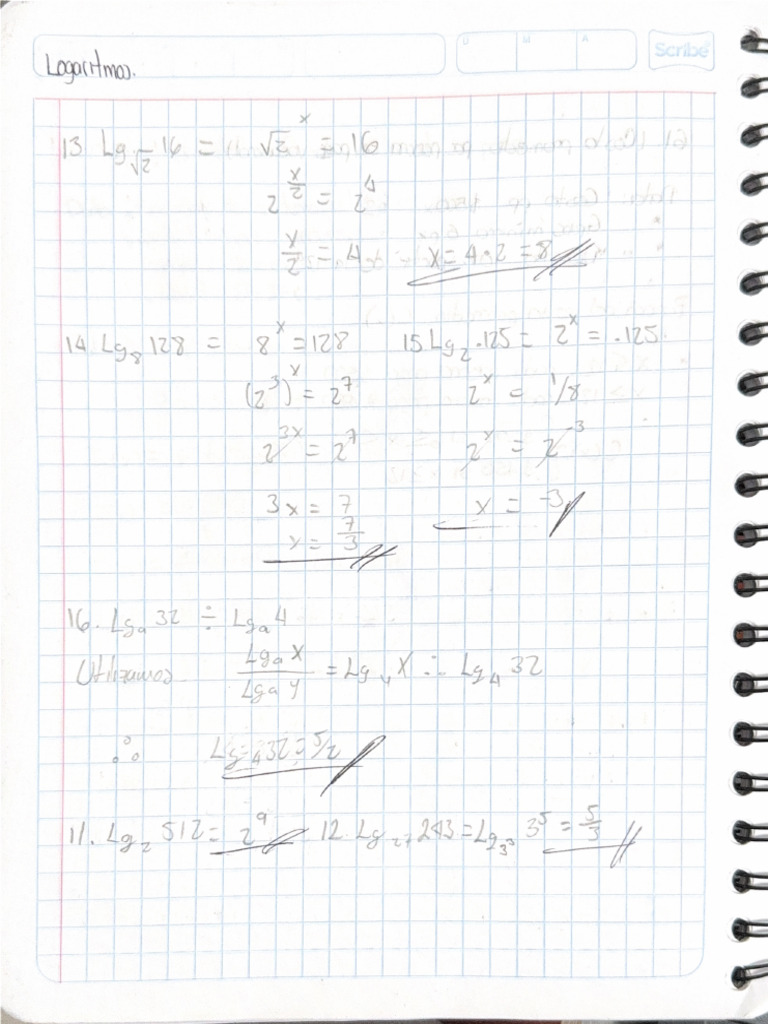 Logaritmos.
U M A
Scribe
13. Lg√2 16 = √2^x = 16
2^(x/2) = 2^4
x/2 = 4 x = 4·2 = 8
14. Lg₈ 128 = 8^x = 128 15. Lg₂ .125 = 2^x = .125
(2^3)^x = 2^7 2^x = 1/8
2^(3x) = 2^7 2^x = 2^-3
3x = 7 x = -3
x = 7/3
16. Lgₐ 32 ÷ Lgₐ 4
Utilizamos Lgₐ X / Lgₐ Y = Lg_y X ∴ Lg₄ 32
∴ Lg₄ 32 = 5/2
11. Lg₂ 512 = 2^9 12. Lg₂₇ 243 = Lg_3³ 3^5 = 5/3